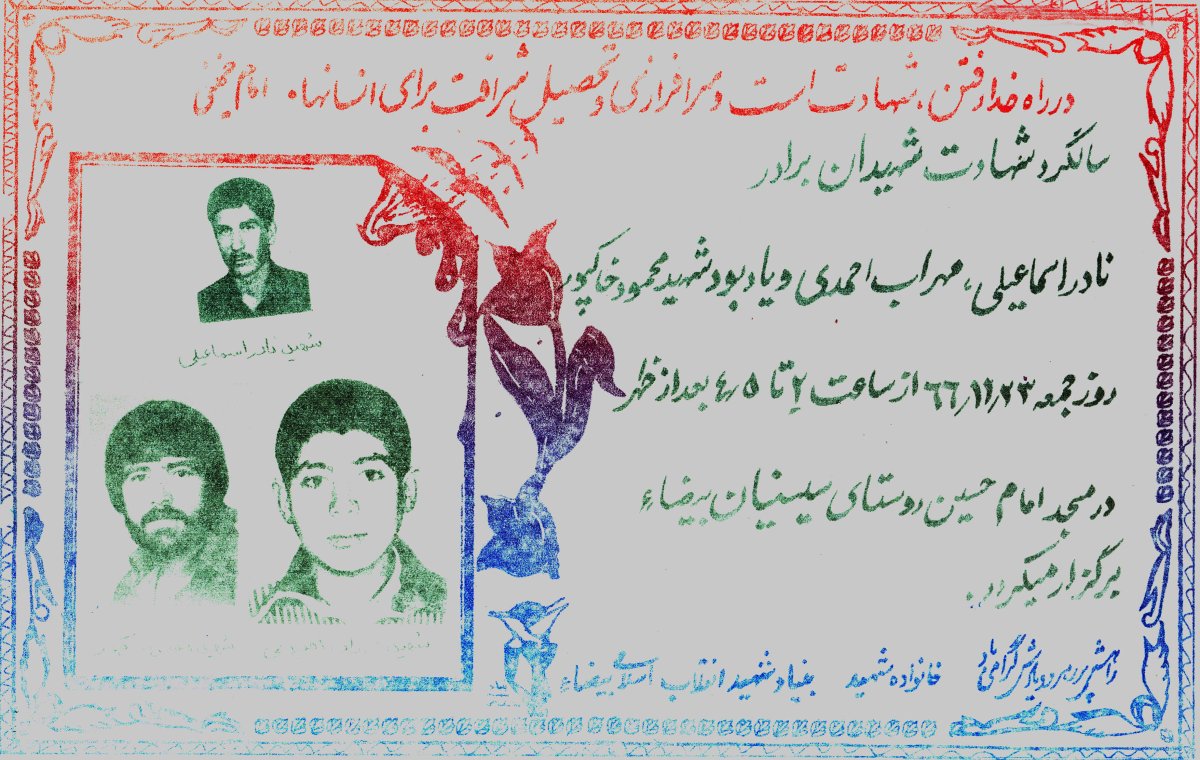 در راه خدا رفتن، شهادت است و سرافرازی و تحصیل شرافت برای انسانها. امام خمینی
سالگرد شهادت شهیدان برادر
نادر اسماعیلی، مهراب احمدی و یادبود شهید محمود خاکپور
روز جمعه ۶۶/۱۱/۲۳ از ساعت ۲ تا ۴/۵ بعد از ظهر
در مسجد امام حسین روستای سیسنیان بیضاء
برگزار میگردد.
راهش پر رهرو و یادش گرامی باد
خانواده شهید
بنیاد شهید انقلاب اسلامی بیضاء
شهید نادر اسماعیلی
شهید
شهید